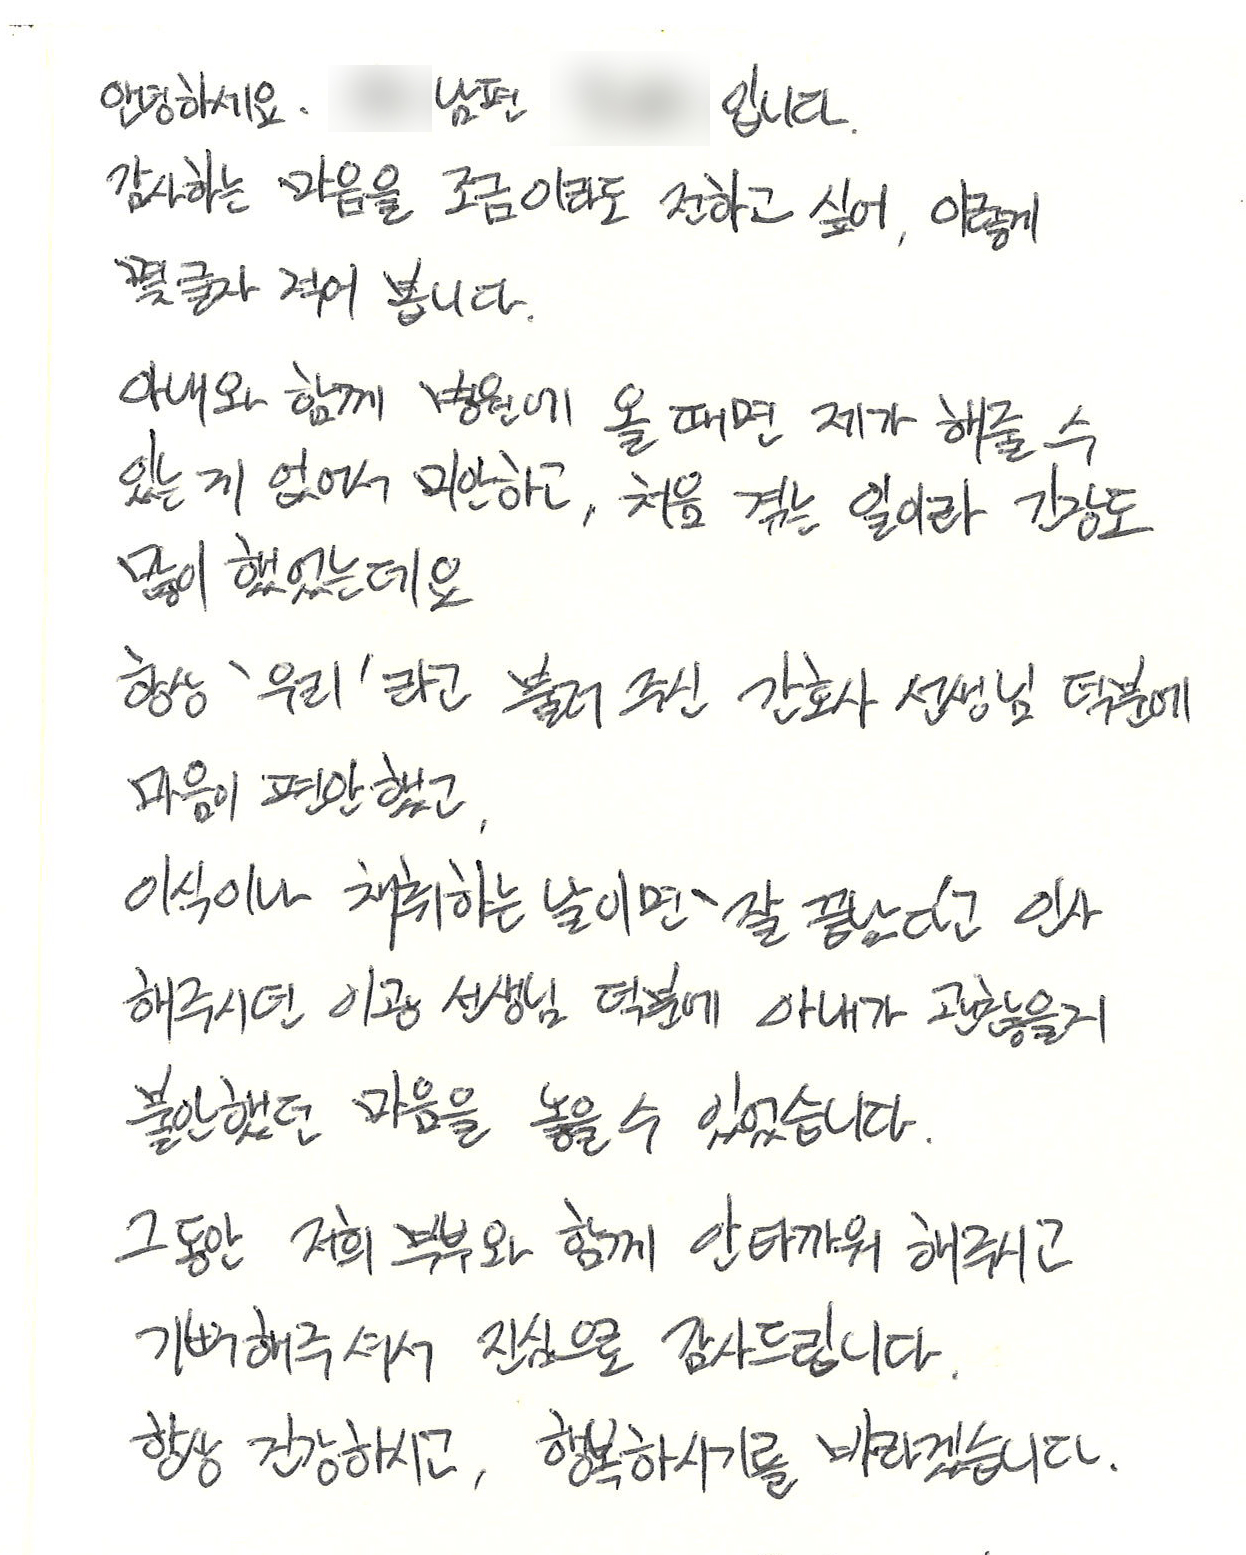 안녕하세요. 남편 입니다.
감사하는 마음을 조금이라도 전하고 싶어, 이렇게
몇글자 적어 봅니다.
아내와 함께 병원에 올 때면 제가 해줄 수
있는게 없어서 미안하고, 처음 겪는 일이라 긴장도
많이 했었는데요
항상 '우리' 라고 불러 주신 간호사 선생님 덕분에
마음이 편안했고,
이식이나 채취하는 날이면 잘 끝났다고 인사
해주시던 이광 선생님 덕분에 아내가 괜찮을지
불안했던 마음을 놓을 수 있었습니다.
그동안 저희 부부와 함께 안타까워 해주시고
기뻐해주셔서 진심으로 감사드립니다.
항상 건강하시고, 행복하시기를 바라겠습니다.